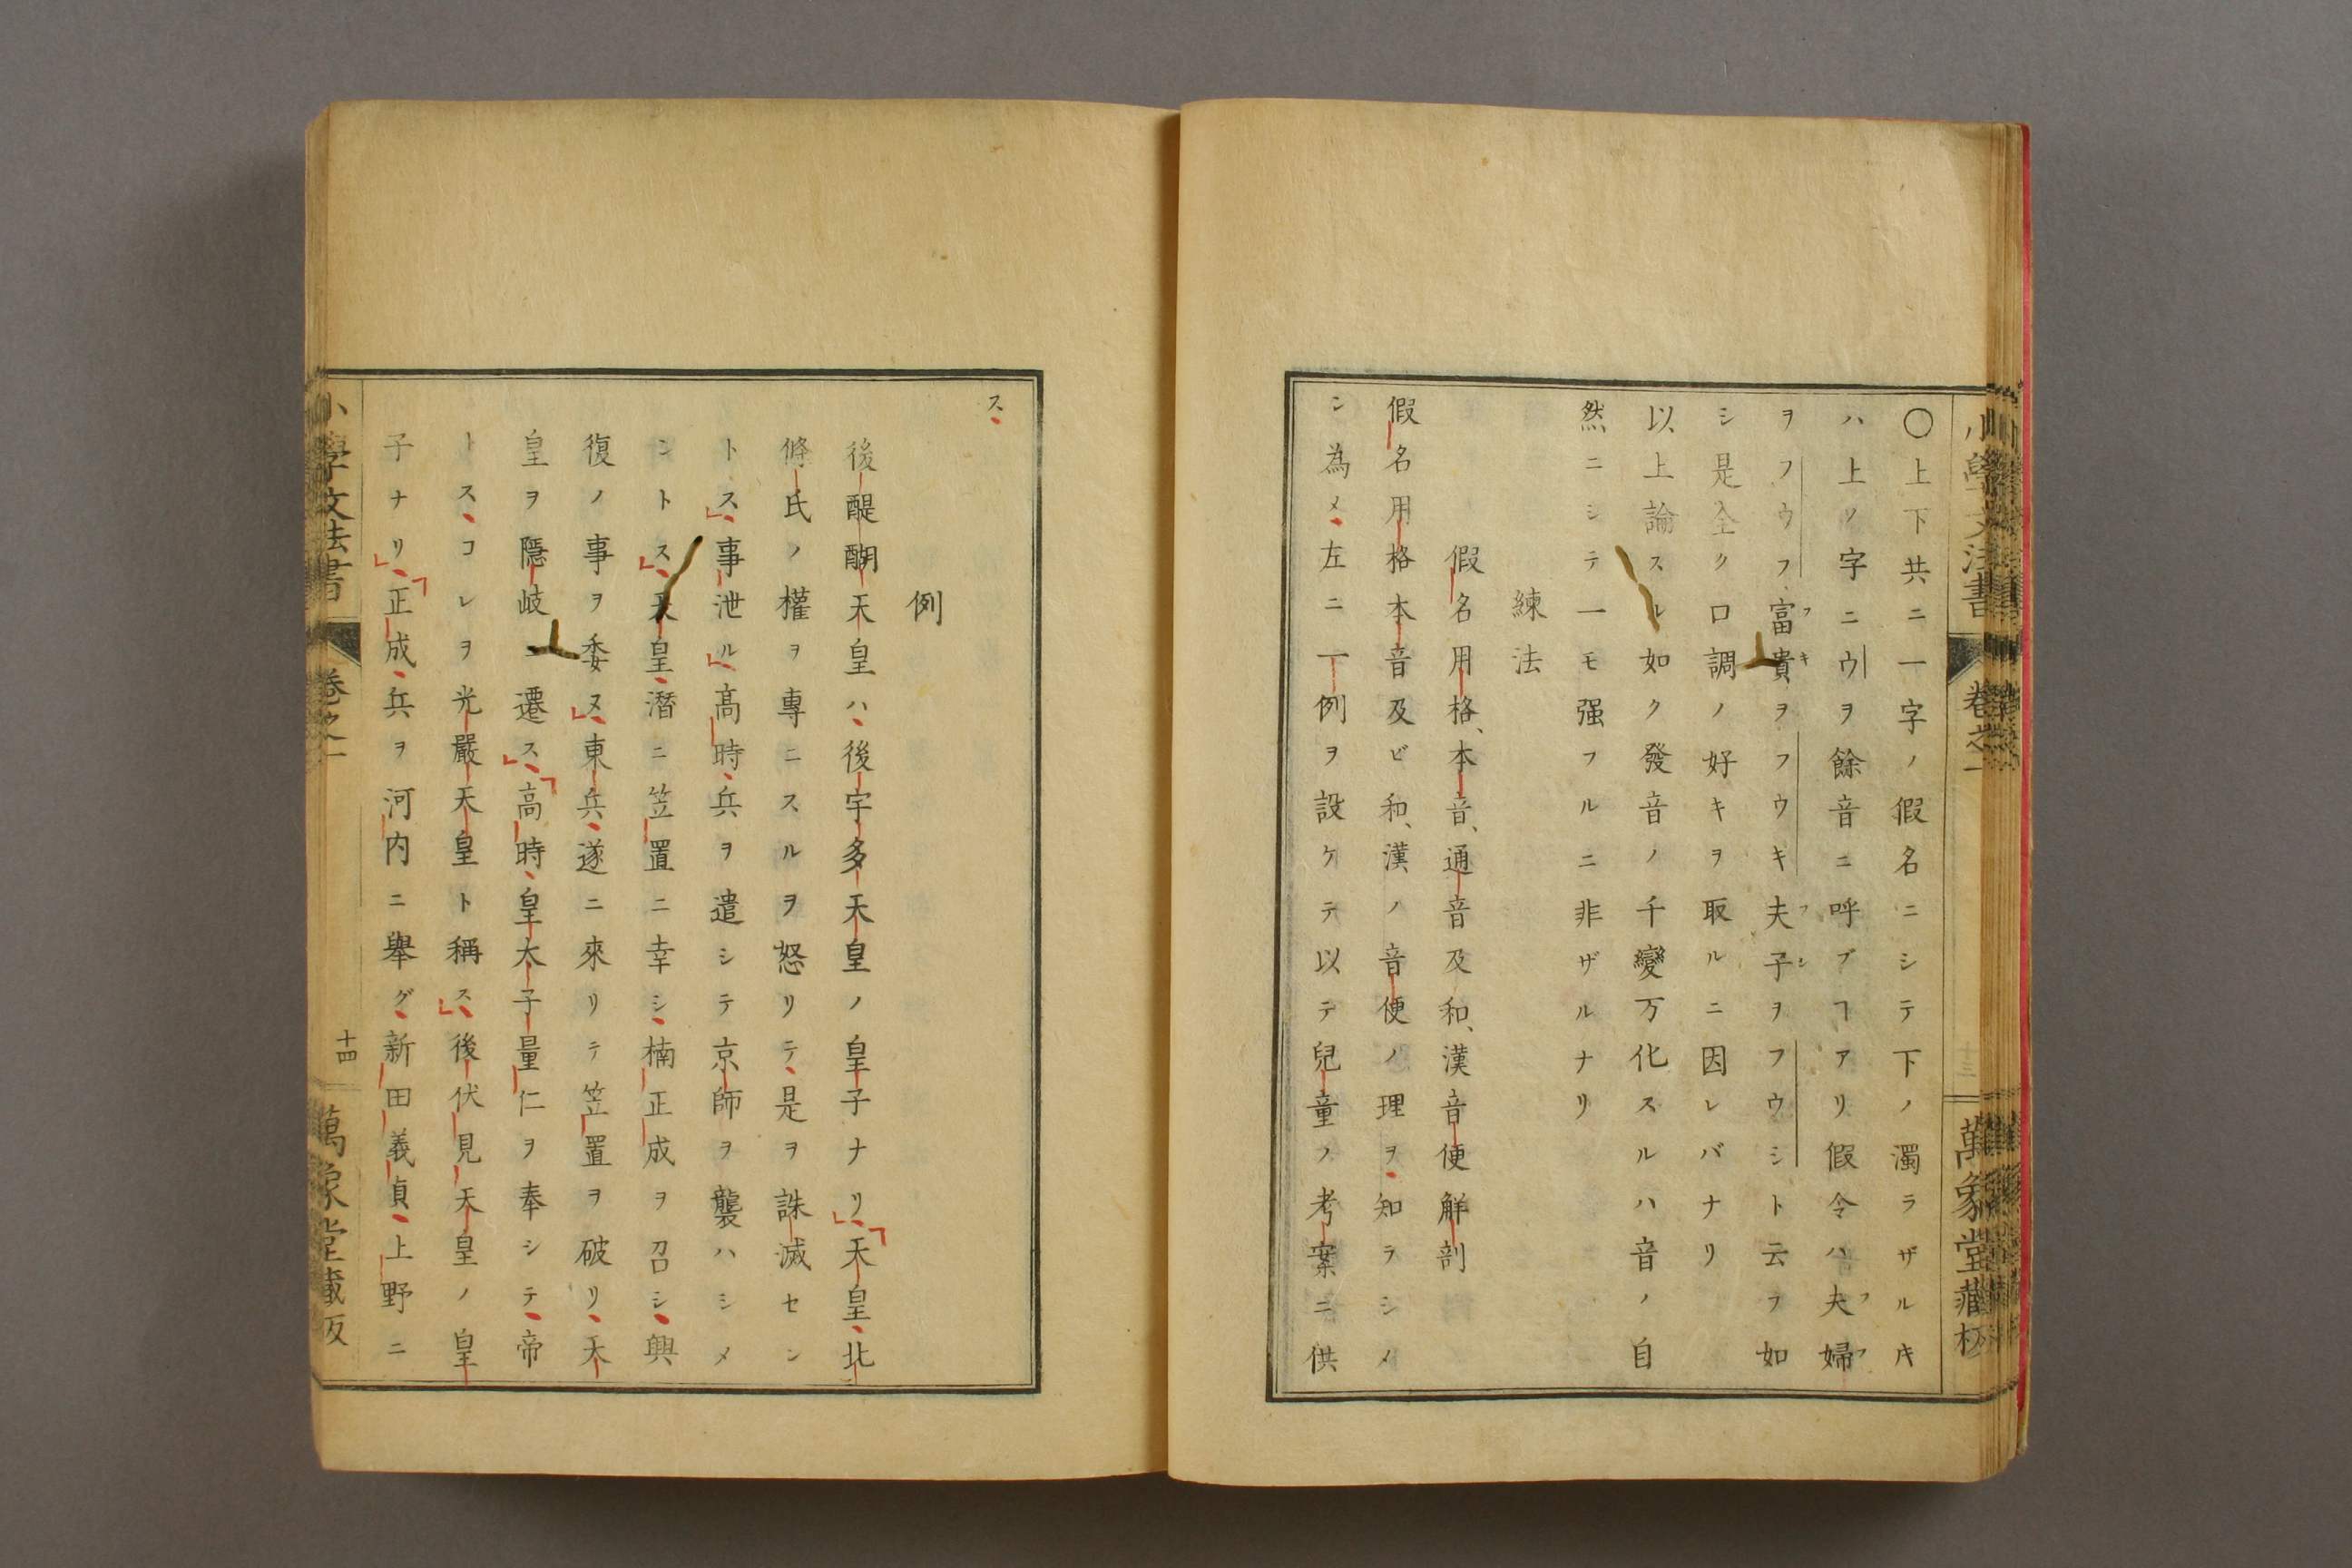 小學文法書 卷之一 十三 萬象堂藏板
〇上下共ニ一字ノ假名ニシテ下ノ濁ラザルキ
ハ上ノ字ニウヲ餘音ニ呼ブヿアリ假令ハ夫婦
ヲフウフ富貴ヲフウキ夫子ヲフウシト云フ如
シ是全ク口調ノ好キヲ取ルニ因レバナリ
以上論スル如ク發音ノ千變万化スルハ音ノ自
然ニシテ一モ强フルニ非ザルナリ
練法
假名用格、本音、通音及和、漢音便解剖
假名用格本音及ビ和、漢ノ音便ノ理ヲ、知ラシメ
ン為メ、左ニ一例ヲ設ケテ以テ兒童ノ考案ニ供
ス、
例
後醍醐天皇ハ、後宇多天皇ノ皇子ナリ、」「天皇、北
條氏ノ權ヲ專ニスルヲ怒リテ、是ヲ誅滅セン
トス、」事泄ル、」髙時、兵ヲ遣シテ京師ヲ襲ハシメ
ントス、」天皇、潛ニ笠置ニ幸シ、楠正成ヲ召シ、興
復ノ事ヲ委ヌ、」東兵、遂ニ來リテ笠置ヲ破リ、天
皇ヲ隱岐ニ遷ス、」「高時、皇太子量仁ヲ奉シテ、帝
トス、コレヲ光嚴天皇ト稱ス、」後伏見天皇ノ皇
子ナリ、」「正成、兵ヲ河内ニ舉グ、新田義貞、上野ニ
小學文法書 卷之一 十四 萬象堂藏板